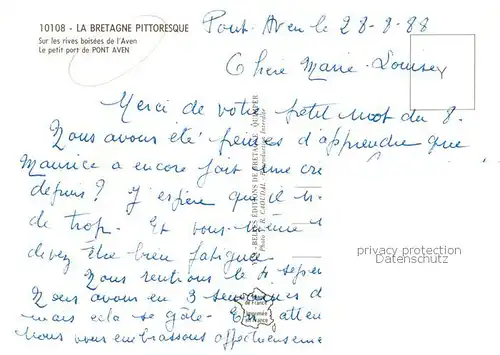 10108 - LA BRETAGNE PITTORESQUE
Sur les rives boisées de l'Aven
Le petit port de PONT AVEN
Pont-Aven le 28-8-88
Chère Marie-Louise,
Merci de votre petit mot du 8.
Nous avons été peinés d'apprendre que
Maurice a encore fait une cri
depuis? J'espère qu'il n'
de trop. Et vous-même
devez être bien fatiguée
Nous rentrons le 4 septem
Nous avons eu 3 semaines d
mais cela se gâte. En atten
Nous vous embrassons affectueuseme
YCA - BELLES ÉDITIONS DE BRETAGNE QUIMPER
Reproduction Interdite
privacy protection
Datenschutz
de France
en France